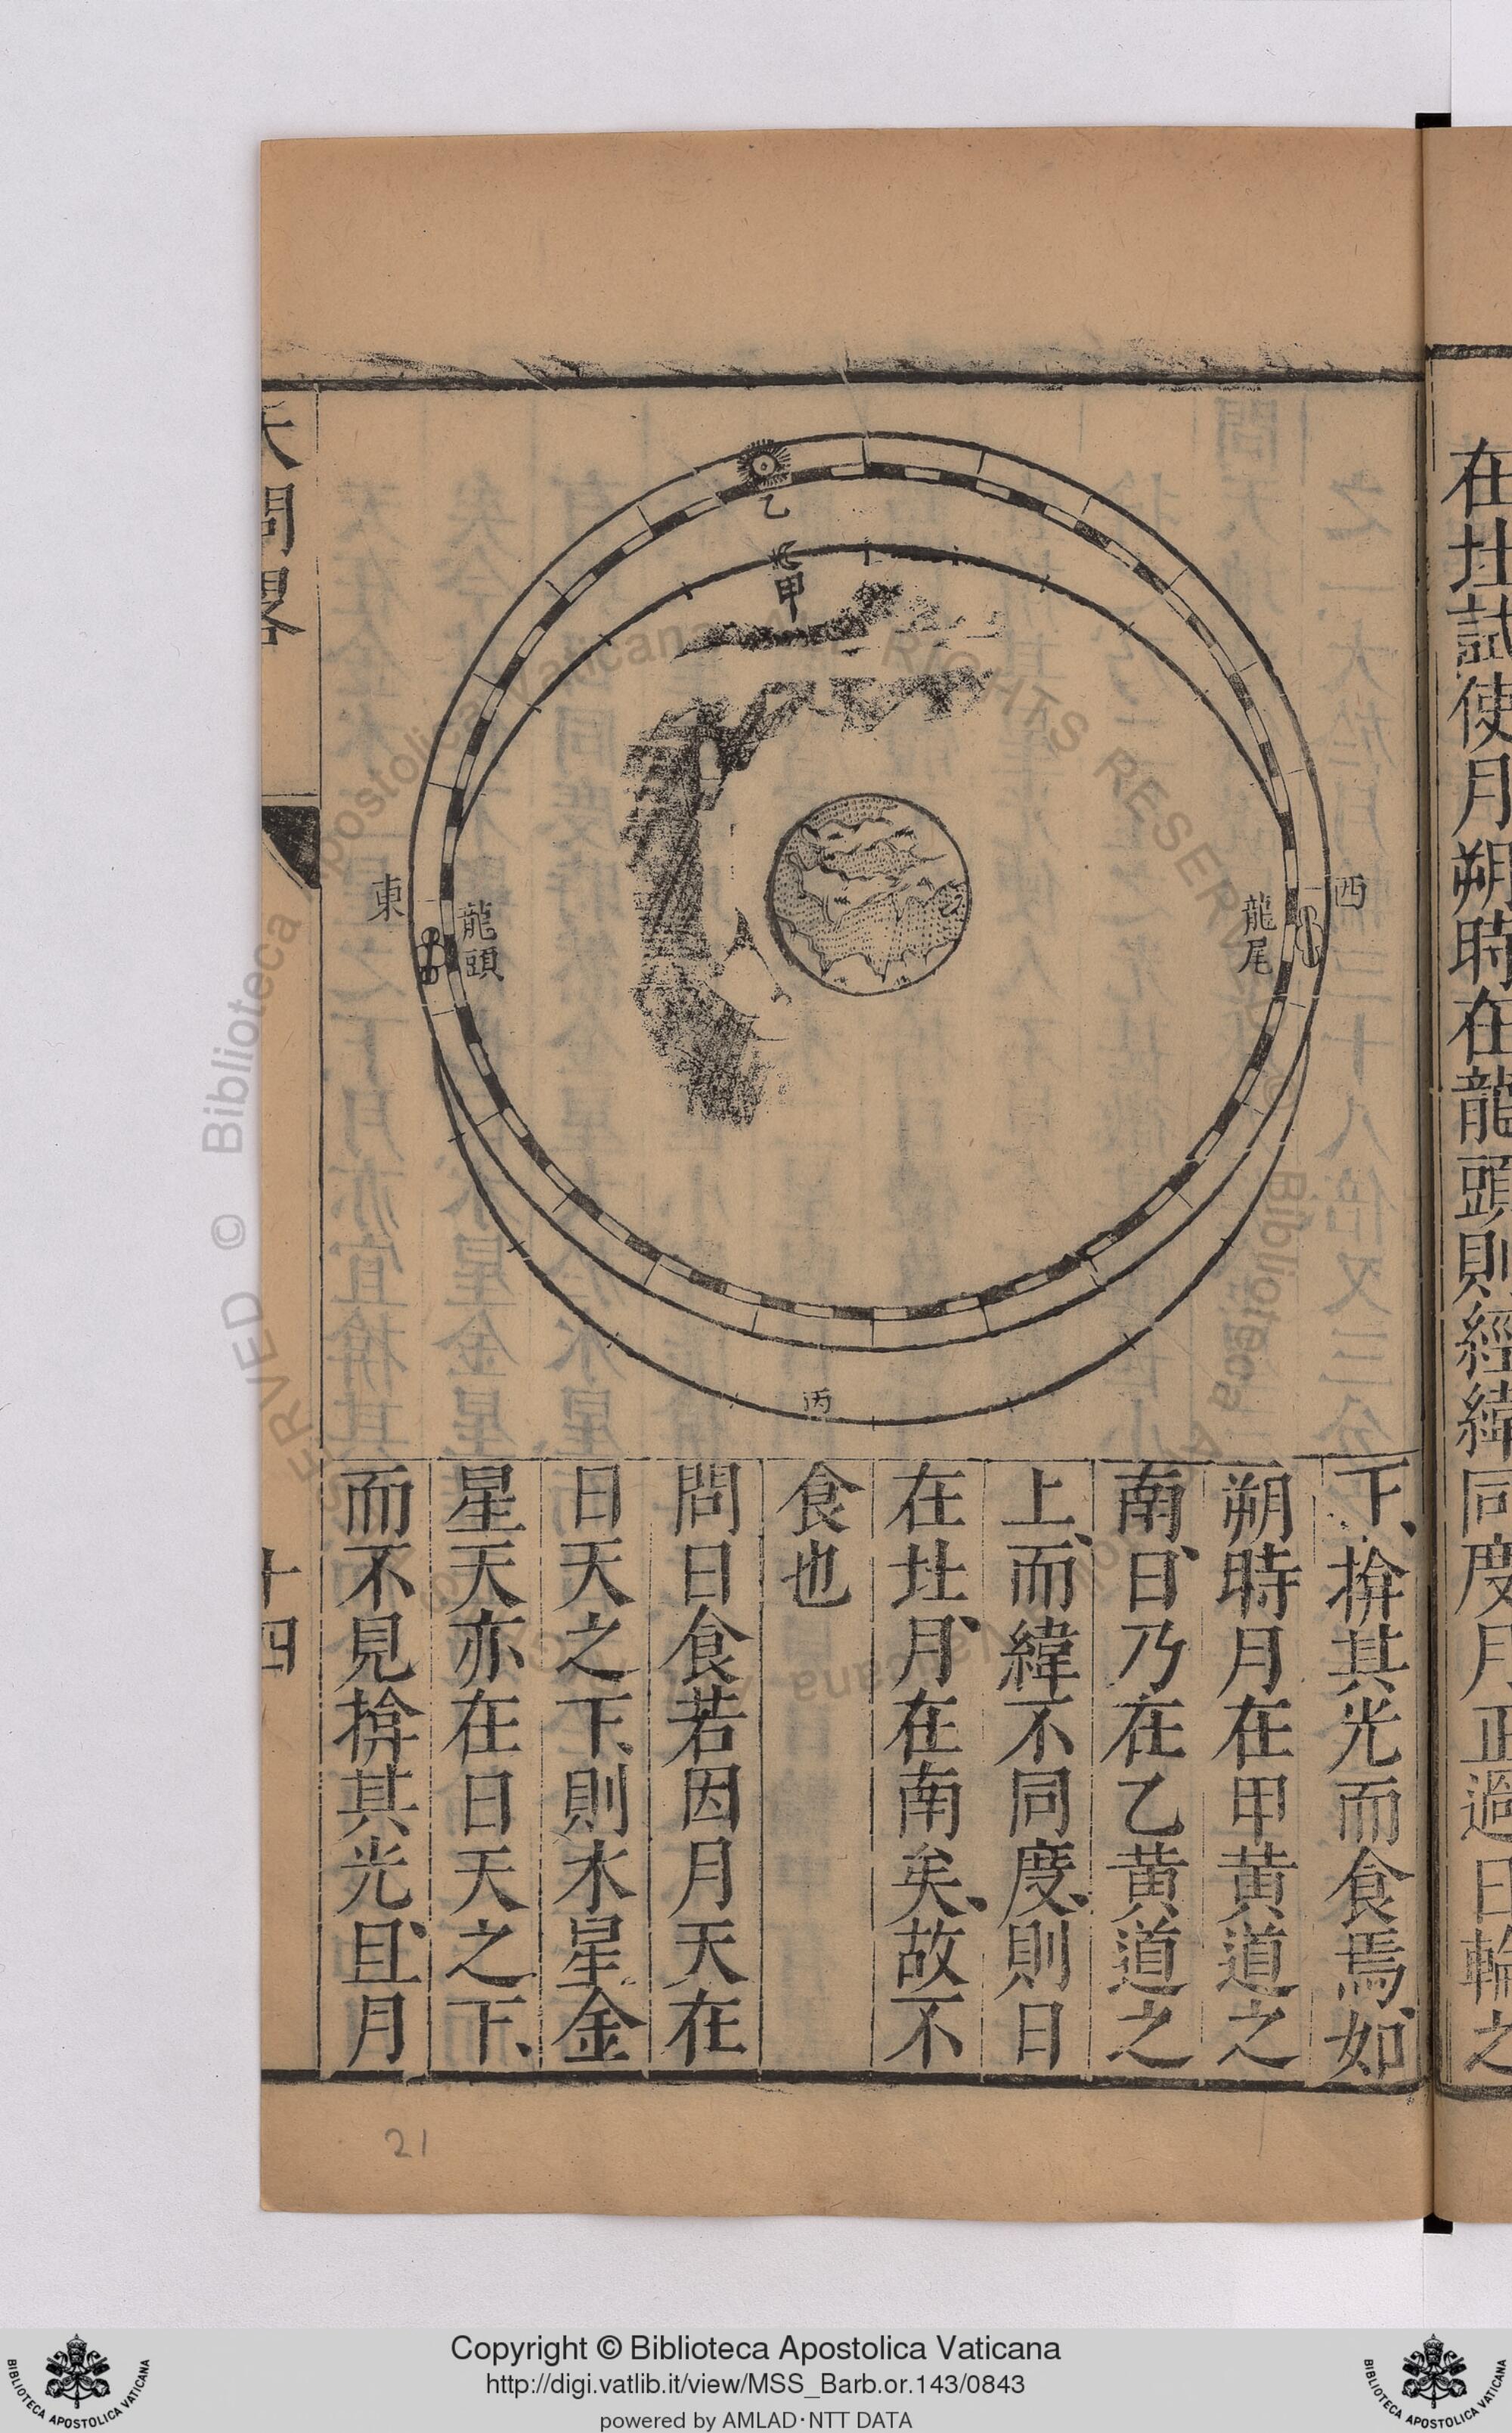 在𡊣試使月朔時在龍頭則經緯同度月正過日輪之
下、揜其光而食焉、如
朔時月在甲黃道之
南、日乃在乙黃道之
上、而緯不同度、則日
在𡊣、月在南矣、故不
食也
問日食若因月天在
日天之下、則水星金
星天亦在日天之下、
而不見揜其光、且月
乙
甲
東
龍頭
龍尾
西
丙
天問畧
十四
21
© Biblioteca Apostolica Vaticana
RIGHTS RESERVED
Copyright © Biblioteca Apostolica Vaticana
http://digi.vatlib.it/view/MSS_Barb.or.143/0843
powered by AMLAD·NTT DATA
BIBLIOTECA APOSTOLICA VATICANA
BIBLIOTECA APOSTOLICA VATICANA